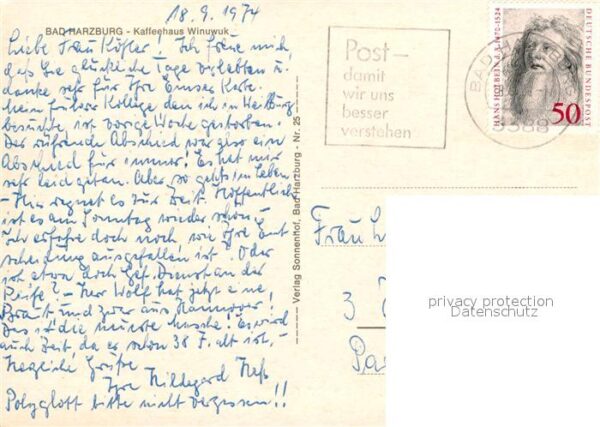 18.9.1974
BAD HARZBURG - Kaffeehaus Winuwuk
Liebe Frau Köhler! Ich freue mich,
daß Sie glückliche Tage verlebten u.
danke sehr für Ihre Emser Karte.
Mein früherer Kollege den ich in Weilburg
besuchte ist vorige Woche gestorben.
Der rührende Abschied war also ein
Abschied für immer! Es hat mir
sehr leid getan. Aber so geht's im Leben
- Hier regnet es zur Zeit. Hoffentlich
ist es am Sonntag wieder schön -
Ich erfahre doch noch wie Ihre Ent
scheidung ausgefallen ist? Oder
ist etwa doch Gef. Dienst an der
- Herr Wolf hat jetzt eine
Braut und zwar aus Hannover!
Das ist die neueste Masche! Es wird
auch Zeit da er schon 38 J. alt ist. -
Herzliche Grüße
Ihre Hildegard Heß
Polyglott bitte nicht vergessen!!
Verlag Sonnenhof, Bad Harzburg - Nr. 25
Post-
damit
wir uns
besser
verstehen
BAD HARZBURG
3388
HANS HOLBEIN D.Ä. 1470-1524
DEUTSCHE BUNDESPOST
50
Frau
3
privacy protection
Datenschutz